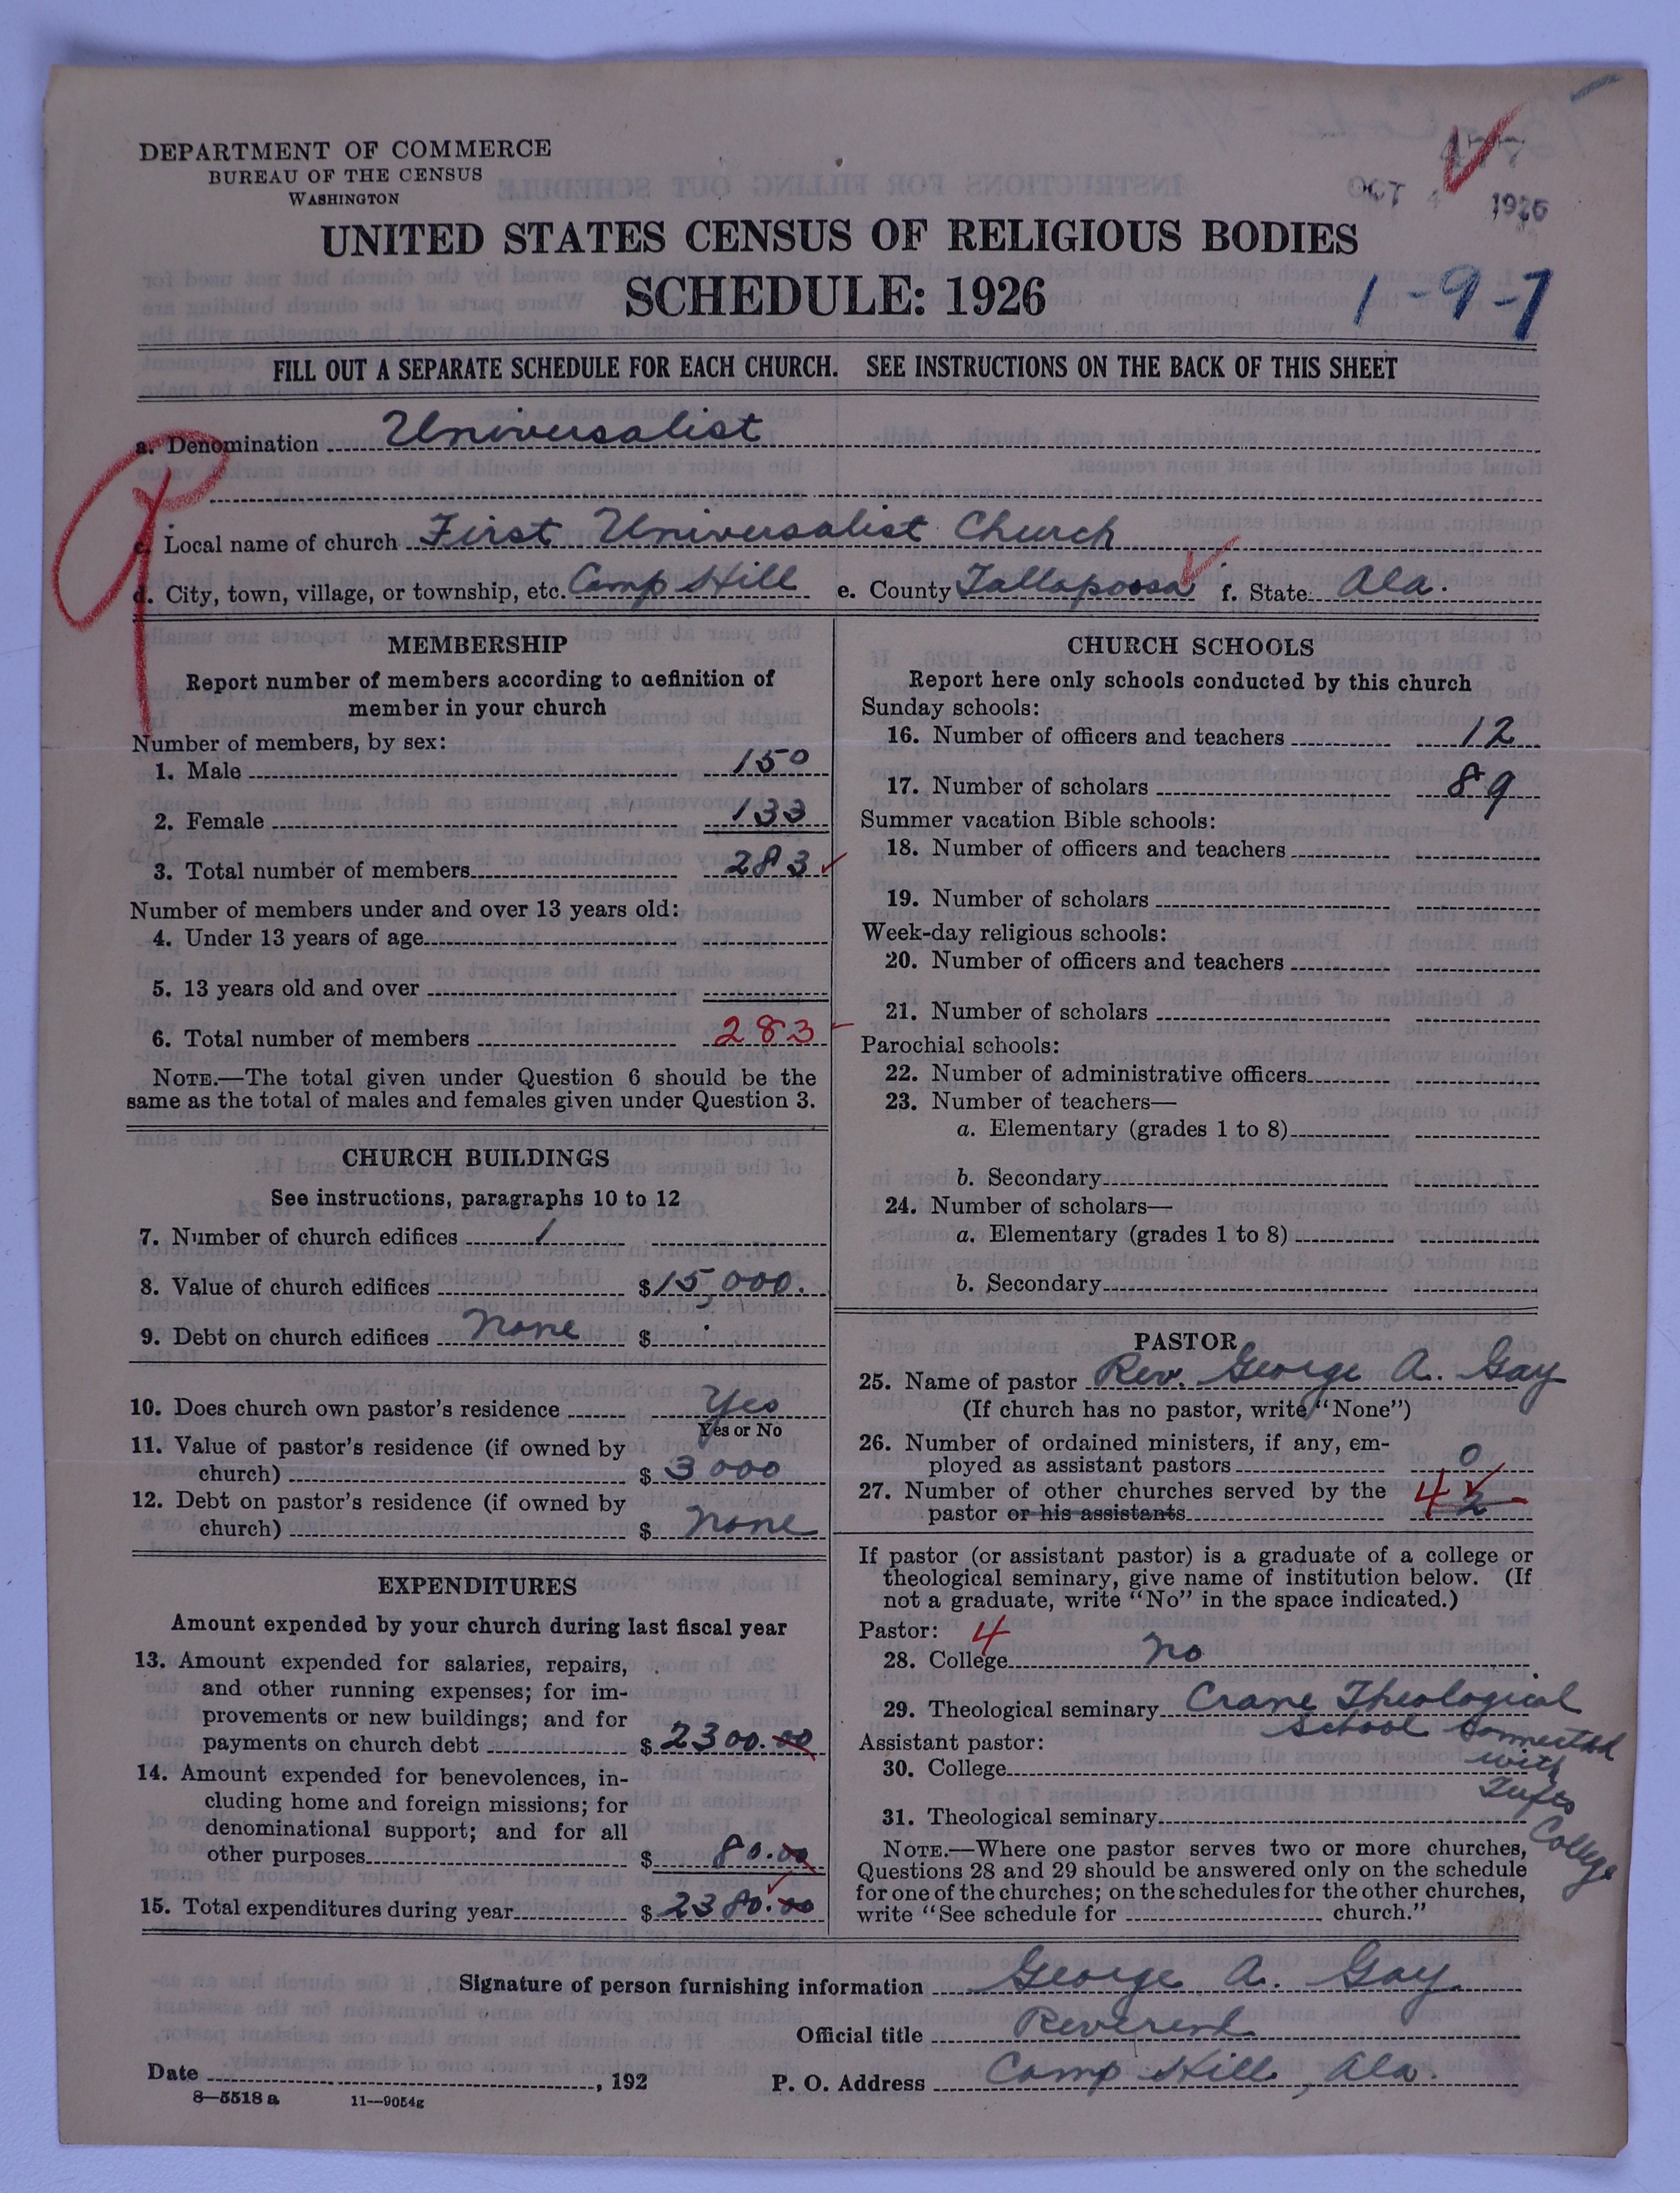 DEPARTMENT OF COMMERCE
BUREAU OF THE CENSUS
WASHINGTON
OCT 4 1926
UNITED STATES CENSUS OF RELIGIOUS BODIES
SCHEDULE: 1926
1-9-7
FILL OUT A SEPARATE SCHEDULE FOR EACH CHURCH. SEE INSTRUCTIONS ON THE BACK OF THIS SHEET
a. Denomination Universalist
c. Local name of church First Universalist Church
d. City, town, village, or township, etc. Camp Hill e. County Tallapoosa f. State Ala.
MEMBERSHIP
Report number of members according to definition of
member in your church
Number of members, by sex:
1. Male 150
2. Female 133
3. Total number of members 283
Number of members under and over 13 years old:
4. Under 13 years of age
5. 13 years old and over
6. Total number of members 283
NOTE.—The total given under Question 6 should be the
same as the total of males and females given under Question 3.
CHURCH BUILDINGS
See instructions, paragraphs 10 to 12
7. Number of church edifices 1
8. Value of church edifices $15,000.
9. Debt on church edifices none $
10. Does church own pastor's residence Yes
Yes or No
11. Value of pastor's residence (if owned by
church) $ 3000
12. Debt on pastor's residence (if owned by
church) $ none
EXPENDITURES
Amount expended by your church during last fiscal year
13. Amount expended for salaries, repairs,
and other running expenses; for im-
provements or new buildings; and for
payments on church debt $ 2300.00
14. Amount expended for benevolences, in-
cluding home and foreign missions; for
denominational support; and for all
other purposes $ 80.00
15. Total expenditures during year $ 2380.00
CHURCH SCHOOLS
Report here only schools conducted by this church
Sunday schools:
16. Number of officers and teachers 12
17. Number of scholars 89
Summer vacation Bible schools:
18. Number of officers and teachers
19. Number of scholars
Week-day religious schools:
20. Number of officers and teachers
21. Number of scholars
Parochial schools:
22. Number of administrative officers
23. Number of teachers—
a. Elementary (grades 1 to 8)
b. Secondary
24. Number of scholars—
a. Elementary (grades 1 to 8)
b. Secondary
PASTOR
25. Name of pastor Rev. George A. Gay
(If church has no pastor, write "None")
26. Number of ordained ministers, if any, em-
ployed as assistant pastors 0
27. Number of other churches served by the
pastor or his assistants 4 2
If pastor (or assistant pastor) is a graduate of a college or
theological seminary, give name of institution below. (If
not a graduate, write "No" in the space indicated.)
Pastor: 4
28. College no
29. Theological seminary Crane Theological
School connected
with
Tufts
College
Assistant pastor:
30. College
31. Theological seminary
NOTE.—Where one pastor serves two or more churches,
Questions 28 and 29 should be answered only on the schedule
for one of the churches; on the schedules for the other churches,
write "See schedule for church."
Signature of person furnishing information George A. Gay
Official title Reverend
Date , 192
P. O. Address Camp Hill, Ala.
8—5518 a 11—9054g